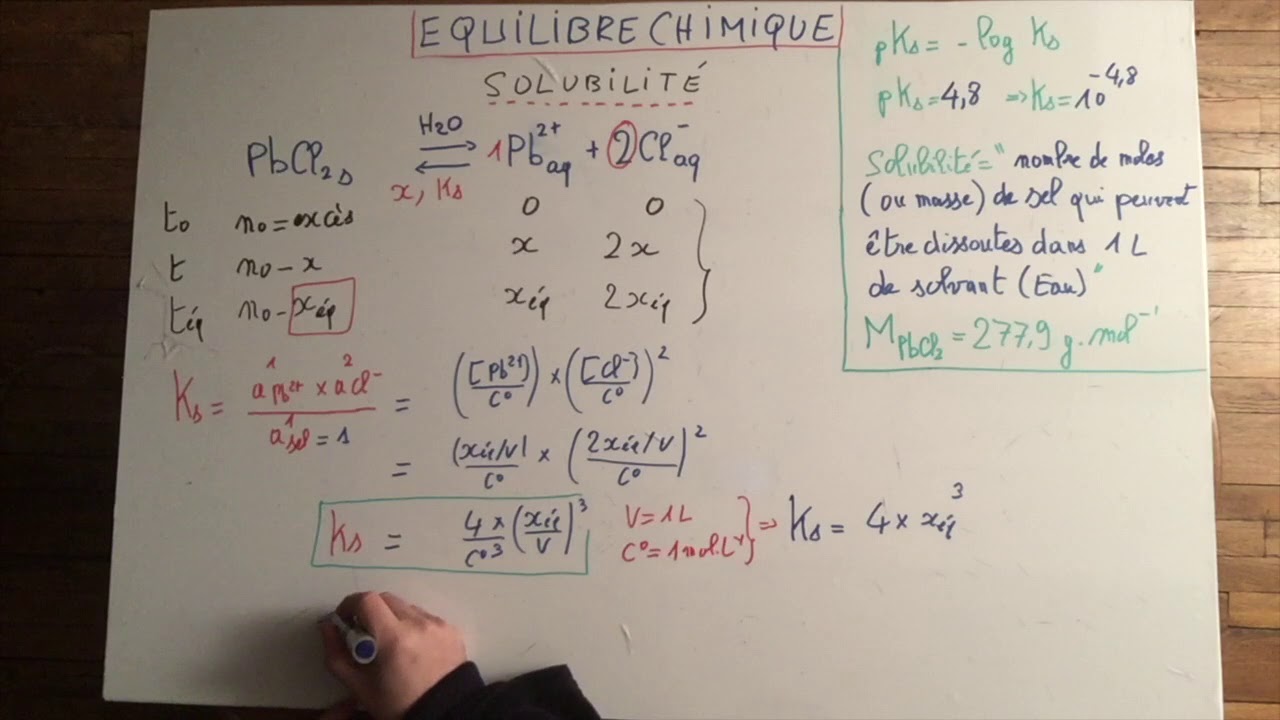 EQUILIBRE CHIMIQUE
SOLUBILITÉ
PbCl₂ₛ ⇌ 1Pb²⁺aq + 2Cl⁻aq
H₂O
x, Ks
t₀ n₀ = excès 0 0
t n₀ - x x 2x
téq n₀ - xéq xéq 2xéq
Ks = (a¹Pb²⁺ × a²Cl⁻) / (a¹sel = 1) = ([Pb²⁺]/C°) × ([Cl⁻]/C°)²
= (xéq/V)/C° × ((2xéq/V)/C°)²
Ks = 4/C°³ × (xéq/V)³
V = 1L
C° = 1mol.L⁻¹
⇒ Ks = 4 × xéq³
pKs = - log Ks
pKs = 4,8 ⇒ Ks = 10⁻⁴,⁸
Solubilité = "nombre de moles
(ou masse) de sel qui peuvent
être dissoutes dans 1L
de solvant (Eau)"
M PbCl₂ = 277,9 g.mol⁻¹